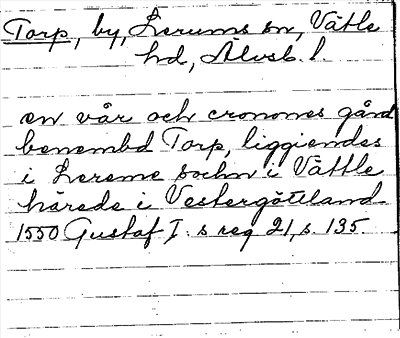 Torp, by, Lerums sn, Vättle
hd, Älvsb. l.
en vår och cronones gård
benembd Torp, liggiendes
i Lereme sochn i Vättle
härede i Vestergötteland
1550 Gustaf I. s reg 21, s. 135.